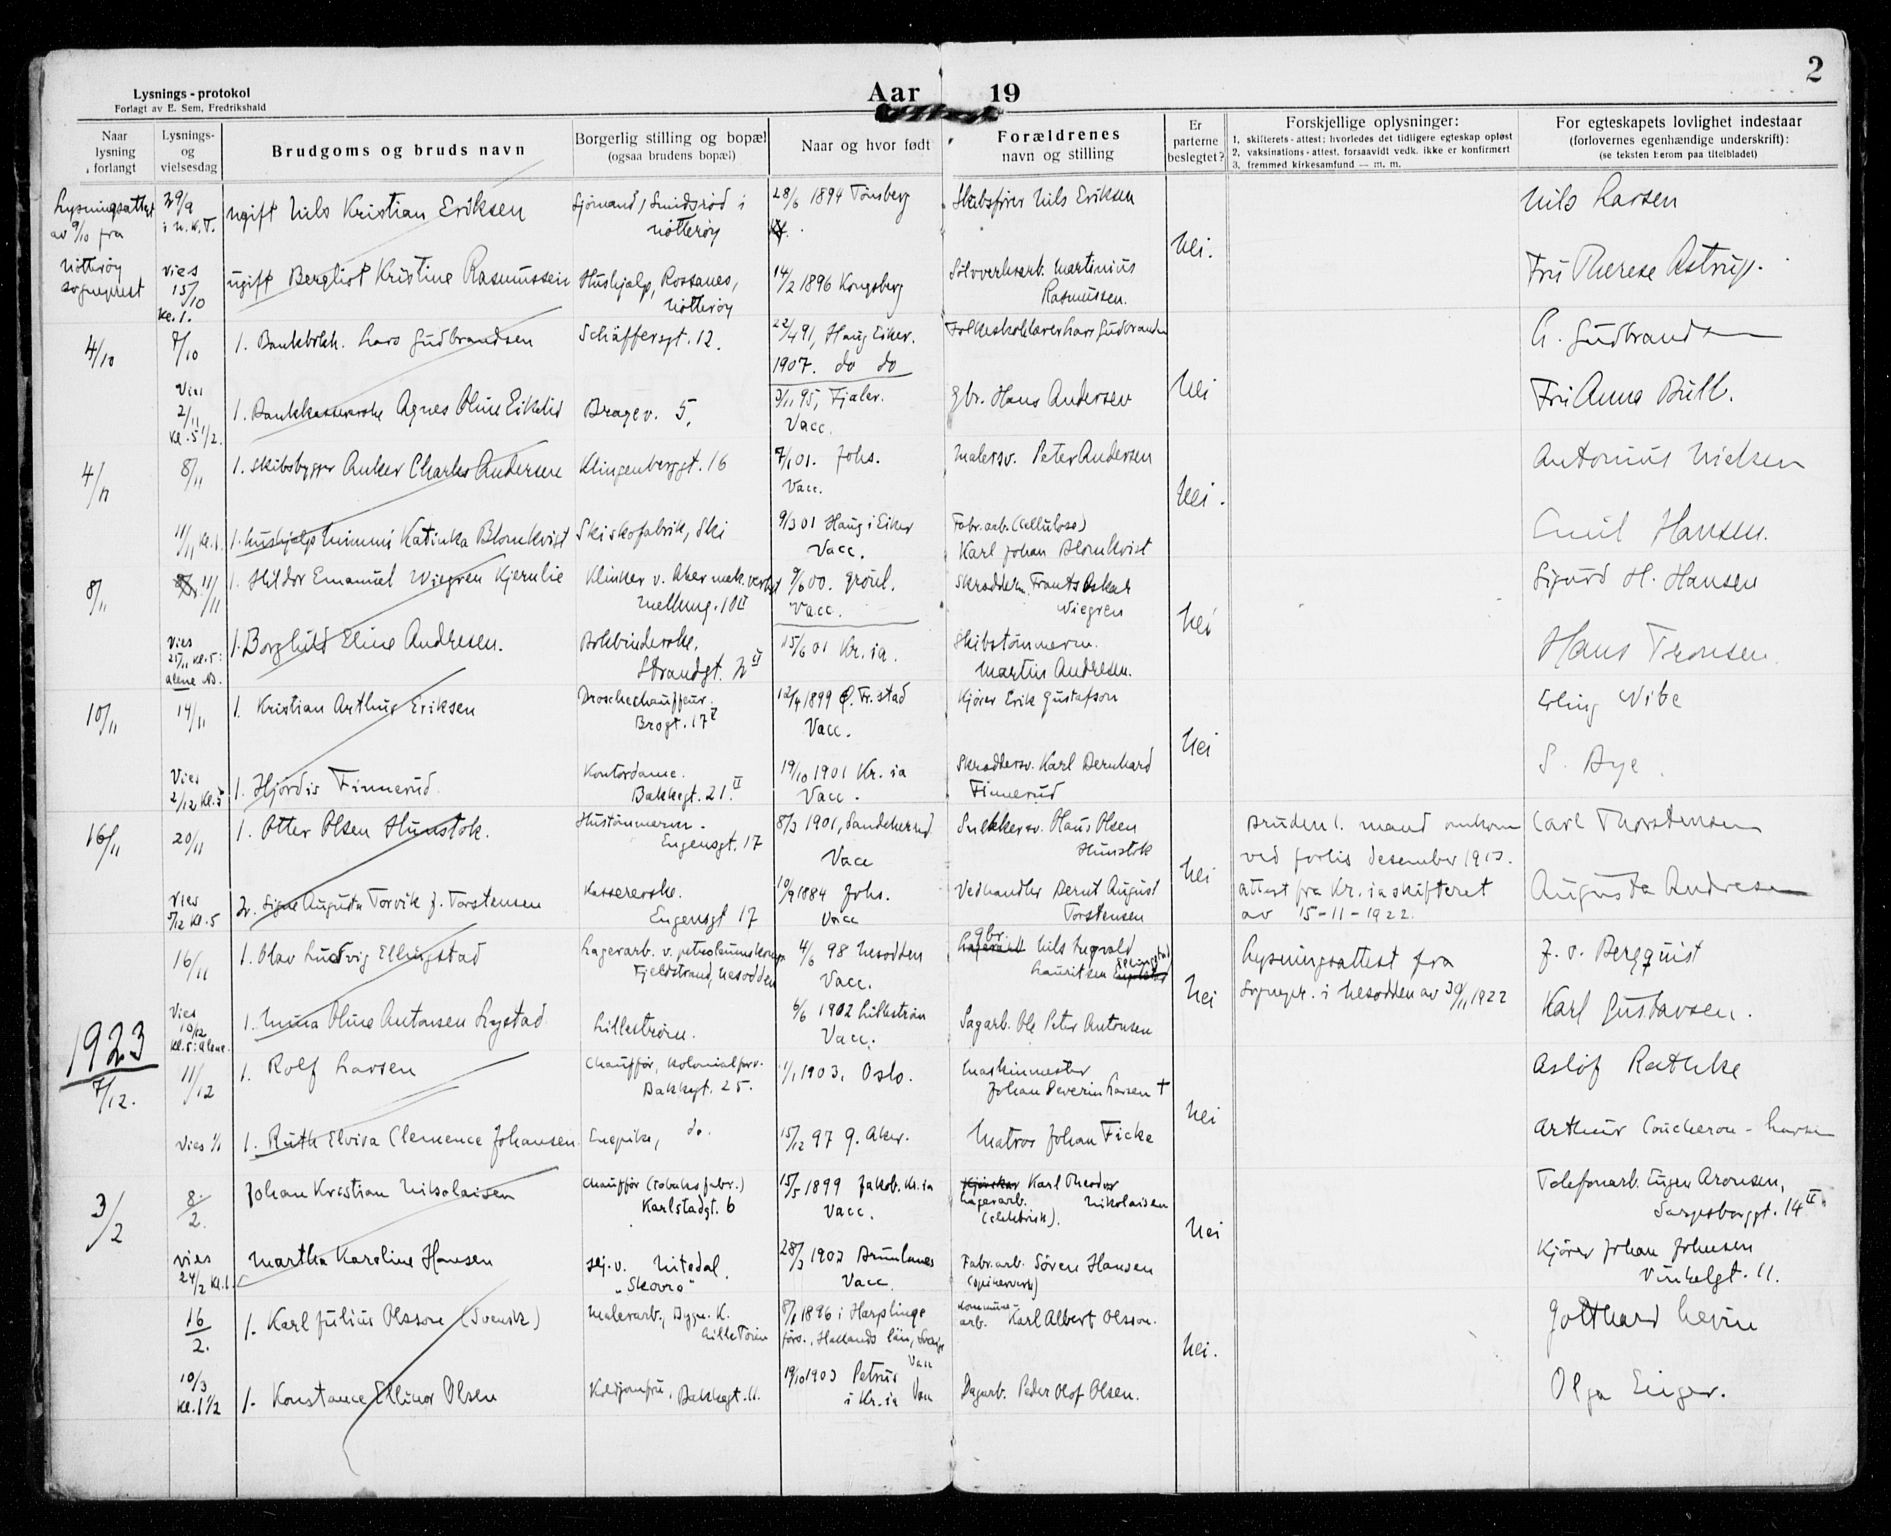 2
Lysnings-protokol
Forlagt av E. Sem, Fredrikshald
Aar 19
Naar lysning forlangt
Lysnings- og vielsesdag
Brudgoms og bruds navn
Borgerlig stilling og bopæl (ogsaa brudens bopæl)
Naar og hvor født
Forældrenes navn og stilling
Er parterne beslegtet?
Forskjellige oplysninger:
1. skilsrets-attest; hvorledes det tidligere egteskap opløst
2. vaksinations-attest, forsaavidt vedk. ikke er konfirmert
3. fremmed kirkesamfund — m. m.
For egteskapets lovlighet indestaar
(forlovernes egenhændige underskrift):
(se teksten herom paa titelbladet)
Lysningsattest av 9/10 fra Nötteröy sogneprest
29/9 i N. K. T.
ugift Nils Kristian Eriksen
Sjömand, Smidsröd i Nötteröy
28/6 1894 Tönsberg
Skibsfører Nils Eriksen
Nei.
Nils Larsen
Vies 15/10 Kl. 1.
ugift Bergliot Kristine Rasmussen
Hushjelp, Rossanes, Nötteröy
14/2 1896 Kongsberg
Sölvverksarb. Martinius Rasmussen.
Fru Therese Astrup.
4/10
7/10
1. Bankbokh. Lars Gudbrandsen
Schäffersgt. 12.
22/4 91, Haug Eiker. 1907. do do
Folkeskolelærer Lars Gudbrandsen
Nei
G. Gudbrandsen
Vies 2/11 Kl. 5 1/2.
1. Bankkassererske Agnes Oline Eikelid
Bragev. 5.
3/11 95, Fjaler. Vacc.
Gbr. Hans Andersen
Fru Anna Bull.
4/11
8/11
1. Skibsbygger Anker Charles Andersen
Klingenberggt. 16
7/1 01. Johs. Vacc.
Malersv. Peter Andersen
Nei.
Antonius Nielsen
11/11 Kl. 1.
1. Hushjelp Mimmi Katinka Blomkvist
Ski skofabrik, Ski
9/3 01 Haug i Eiker Vacc.
Fabr. arb. (Cellulose) Karl Johan Blomkvist
Emil Hansen.
8/11
11/11
1. Hildor Emanuel Wiegren Kjernlie
Klinker v. Aker mek. verksted Mellemg. 10 II
9/6 00. Grönl. Vacc.
Skrædderm. Frants Oskar Wiegren
Nei
Sigurd H. Hansen
Vies 25/11 Kl. 5: alene
1. Borghild Eline Andresen.
Bokbinderske. Strandgt. 2 II
15/6 01 Kr.ia.
Skibstömmerm. Martin Andresen.
Hans Tronsen
10/11
14/11
1. Kristian Arthur Eriksen
Droschechauffeur. Brogt. 17 I
12/4 1899 Ö. Fr.stad Vacc.
Kjörer Erik Gustafson
Nei
Erling Vibe
Vies 2/12 Kl. 5
1. Hjördis Finnerud.
Kontordame. Bakkegt. 21. II
19/10 1901 Kr.ia Vacc.
Skræddersv. Karl Bernhard Finnerud
S. Bye.
16/11
20/11
1. Otter Olsen Hunstok.
Hustömmerm. Eugensgt. 17
8/3 1901, Sandeherred. Vacc
Snekkersv. Hans Olsen Hunstok
Nei
Brudens 1. mand omkom ved forlis desember 1913. Attest fra Kr.ia skifteret av 15-11-1922.
Carl Thorstensen
Vies 5/12 Kl. 5
2. Signe Augusta Torvik f. Torstensen
Kassererske. Eugensgt 17
10/9 1884 Johs. Vacc
Vedhandler Bernt August Torstensen
Augusta Andresen
16/11
1. Olav Ludvig Ellingstad
Lagerarb. v. petroleumskomp. Fjeldstrand, Nesodden
4/6 98 Nesodden Vacc.
gbr. Nils Ingvald Lauritsen Ellingstad
Nei
Lysningsattest fra Sognepr. i Nesodden av 30/11 1922
J. v. Bergquist
Vies 10/12 Kl. 5: alene.
1. Mina Oline Antonsen Rystad.
Lilleström.
6/6 1902 Lilleström Vacc.
Sagarb. Ole Peter Antonsen
Karl Gustavsen.
1923
7/12.
11/12
1. Rolf Larsen
Chauffør, kolonialforr. Bakkegt. 25.
1/1 1903. Oslo.
Maskinmester Johan Severin Larsen †
Nei
Asløf Rathke
Vies 1/1
1. Ruth Elvira Clemence Johansen.
Enepike, do.
15/12 97 g. Aker.
Matros Johan Ficke
Arthur Coucheron-Larsen
3/2
8./2.
Johan Kristian Nikolaisen
Chauffør (tobaksfabr.) Karlstadgt. 6
15/5 1899 Jakob. Kr.ia Vacc.
Karl Theodor Nikolaisen Lagerarb. (elektrisk).
Nei
Telefonarb. Eugen Aronsen, Sarpsborggt. 14 II
Vies 24/2 Kl. 1.
Martha Karoline Hansen
sej. v. Nitedal. "Skovro"
28/3 1903 Brunlanes Vacc.
Fabr. arb. Sören Hansen (Spikerverk)
Kjörer Johan Johnsen Vinkelgt. 11.
16/2.
1. Karl Julius Olsson (Svensk)
Malerarb., Bygn. K. Lilletorin
8/8 1896 i Harplinge förs., Hallands län, Sverige Vacc
Kommune-arb. Karl Albert Olsson.
Nei.
Gotthard Levin
10/3 Kl. 1 1/2
1. Konstance Ellinor Olsen
Koldjomfru, Bakkegt. 11.
19/10 1903 Petrus i Kr.ia Vacc
Dagarb. Peder Olof Olsen.
Olga Einger.